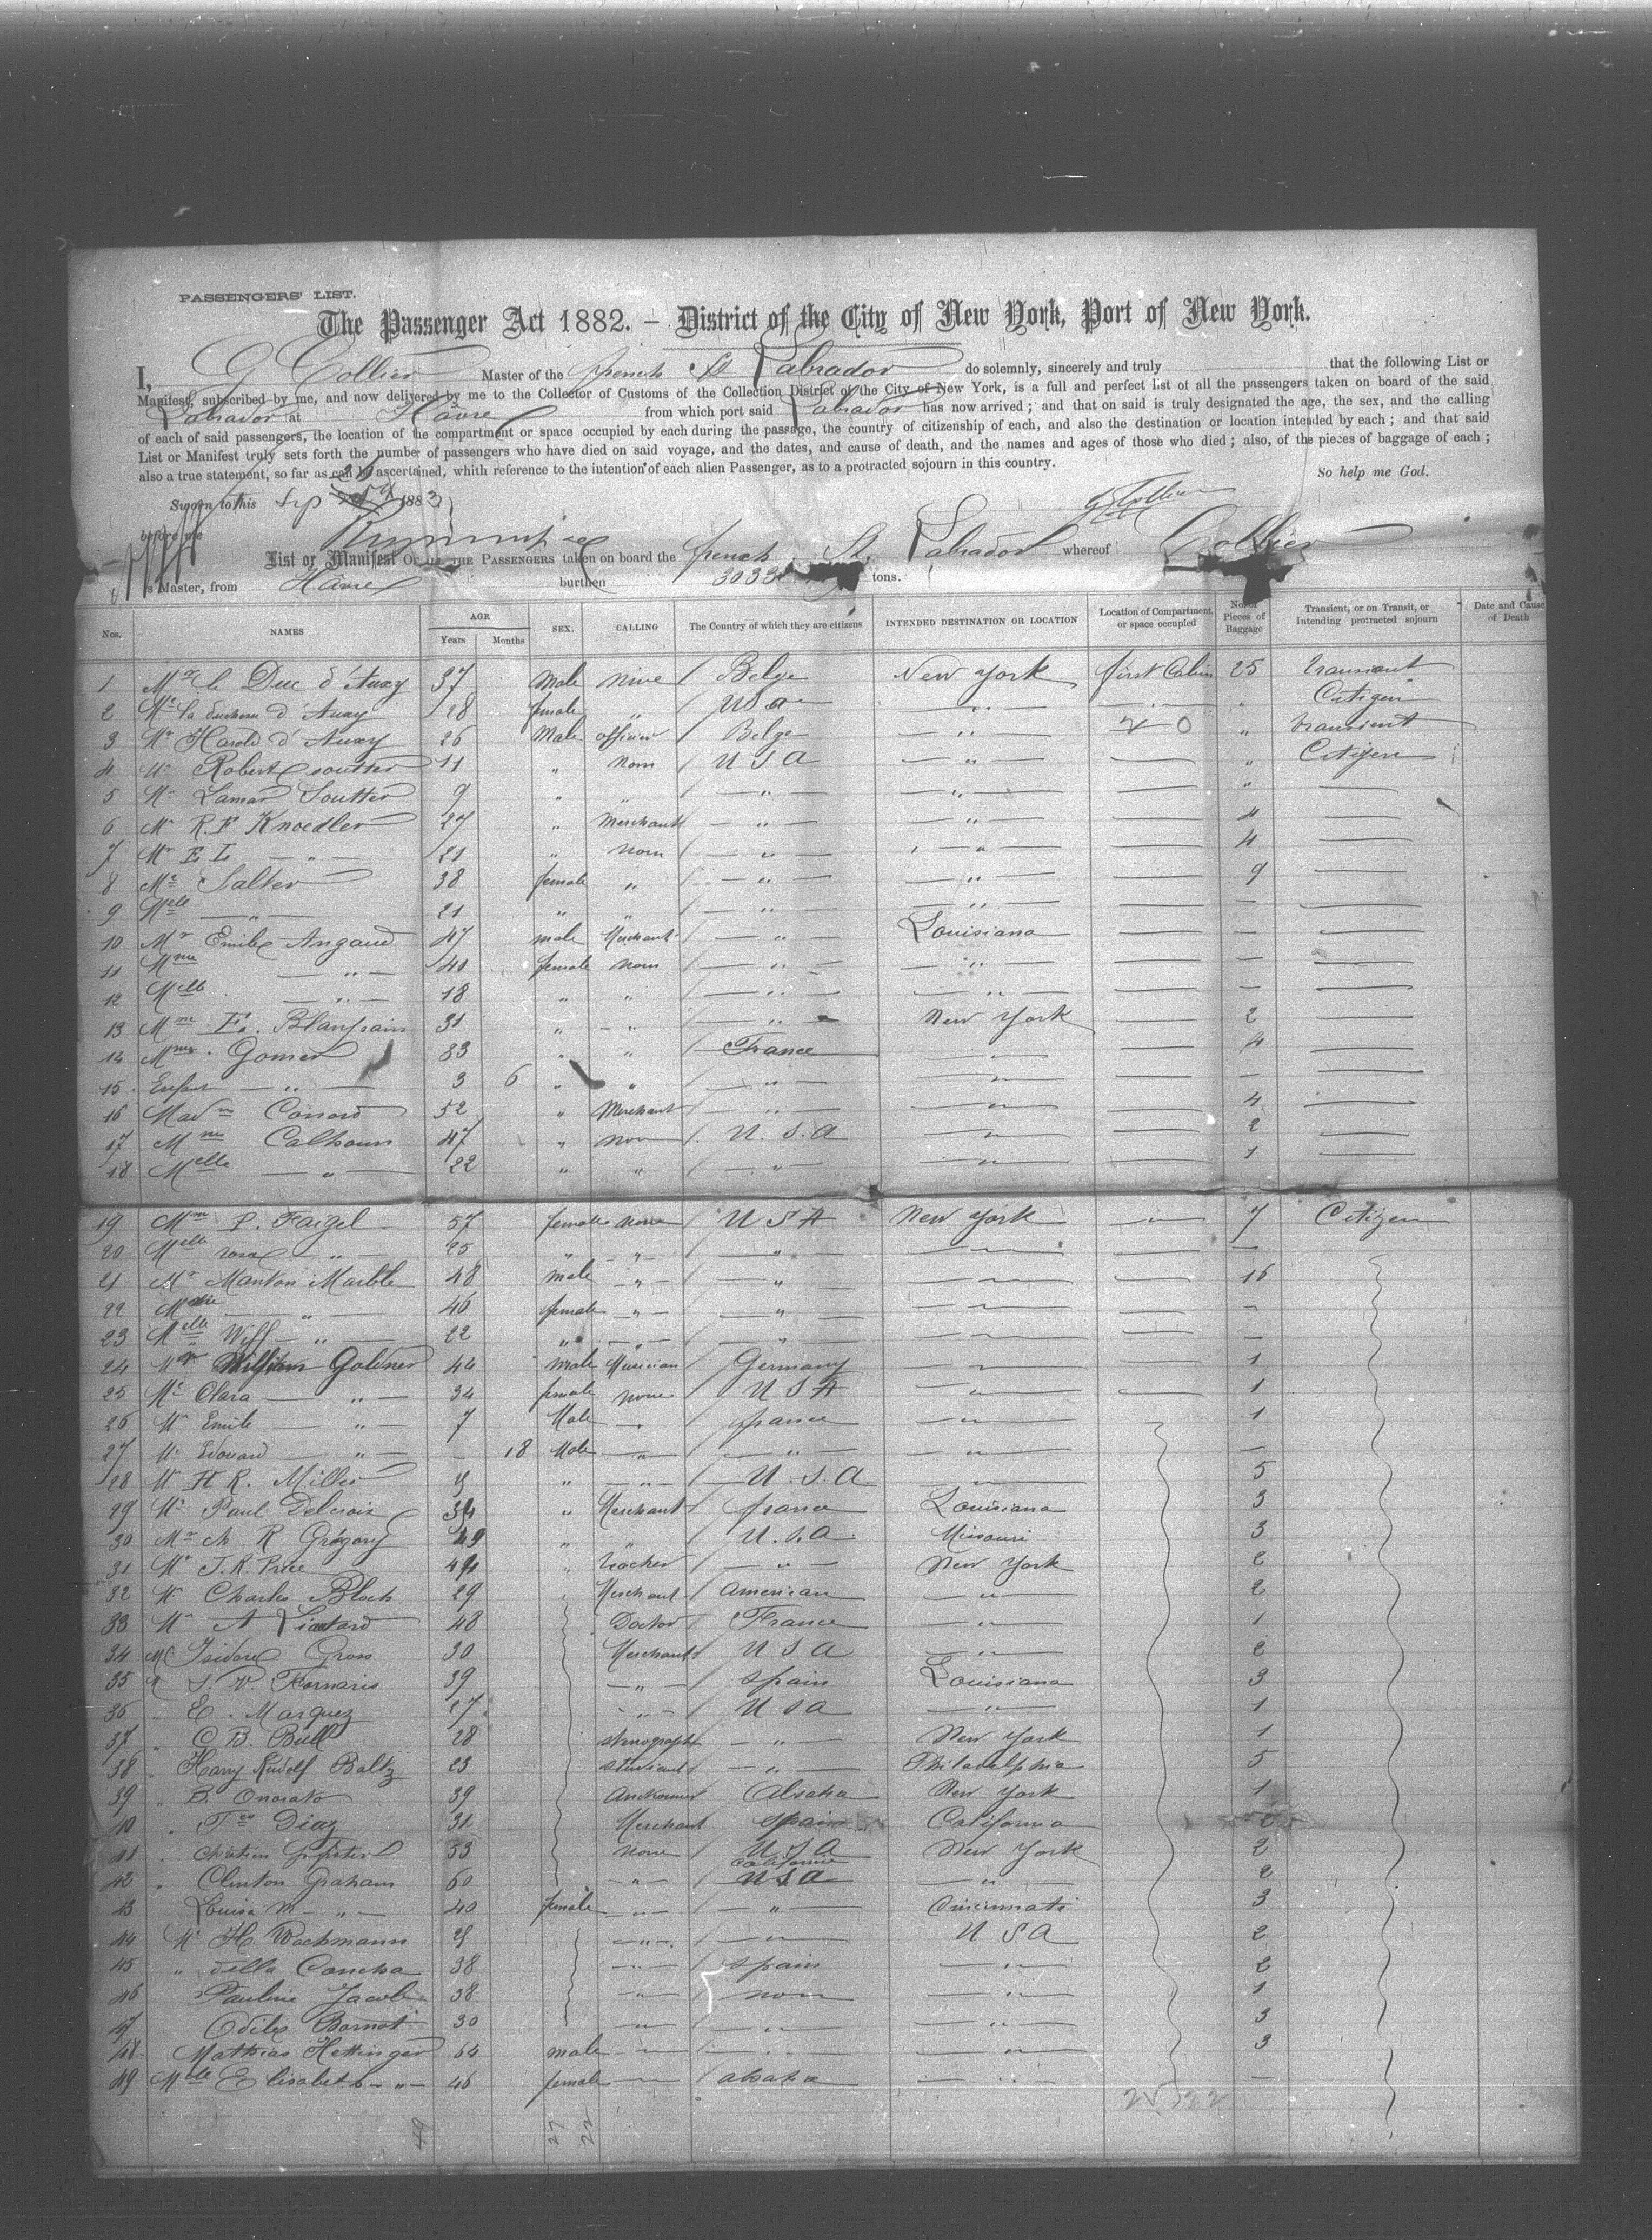 PASSENGERS' LIST.
The Passenger Act 1882. – District of the City of New York, Port of New York.
I, G Collier Master of the french St Labrador do solemnly, sincerely and truly that the following List or
Manifest, subscribed by me, and now delivered by me to the Collector of Customs of the Collection District of the City of New York, is a full and perfect list of all the passengers taken on board of the said
Labrador at Havre from which port said Labrador has now arrived; and that on said is truly designated the age, the sex, and the calling
of each of said passengers, the location of the compartment or space occupied by each during the passage, the country of citizenship of each, and also the destination or location intended by each; and that said
List or Manifest truly sets forth the number of passengers who have died on said voyage, and the dates, and cause of death, and the names and ages of those who died; also, of the pieces of baggage of each;
also a true statement, so far as can be ascertained, whith reference to the intention of each alien Passenger, as to a protracted sojourn in this country. So help me God.
Sworn to this Sep 1883 G Collier
before me
List or Manifest OF ALL THE PASSENGERS taken on board the french St. Labrador whereof Collier
is Master, from Havre burthen 3033 tons.
Nos. NAMES AGE Years Months SEX. CALLING The Country of which they are citizens INTENDED DESTINATION OR LOCATION Location of Compartment, or space occupied No. of Pieces of Baggage Transient, or on Transit, or Intending protracted sojourn Date and Cause of Death
1 Mr le Duc d'Auxy 37 Male none Belge New York first Cabin 25 transient
2 Me la duchesse d'Auxy 28 female " USa — " — — " — " Citizen
3 Mr Harold d'Auxy 26 Male officier Belge — " — " transient
4 Mr Robert Soutter 11 " non U S A — " — — " Citizen
5 Mr Lamar Soutter 9 " " — " — — " — — " —
6 Mr R. F Knoedler 27 " Merchant — " — — " — — 4 —
7 Mr E L — " — 21 " non — " — — " — — 4 —
8 Me Salter 38 female " — " — — " — — 9 —
9 Melle — " — 21 " " — " — — " — — — —
10 Mr Emile Angaud 47 male Merchant — " — Louisiana — — —
11 Mme — " — 40 female non — " — — " — — — —
12 Melle — " — 18 " " — " — — " — — — —
13 Mme E. 31 " — " — " — New York — 2 —
14 Mme Gomer 33 " " France — " — — 4 —
15 Enfant — " — 3 6 " " — " — — " — — — —
16 Madm 52 " Merchant — " — — " — — 4 —
17 Mme Calhoun 47 " non U. S. A — " — — 2 —
18 Melle — " — 22 " " — " — — " — — 1 —
19 Mm P. Faigel 57 female none U S A New York — " — 7 Citizen
20 Melle rosa — " — 25 " — " — — " — — " — — —
21 Mr Manton Marble 48 male — " — — " — — " — — 16
22 — " — 46 female — " — — " — — " — — —
23 Melle Wiff — " — 22 " — " — — " — — " — — —
24 Mr William Goldner 44 male Musician Germany — " — 1
25 Me Clara — " — 34 female none U S A — " — — 1
26 Mr Emile — " — 7 Male — " — france — " — 1
27 Mr Edouard — " — — 18 Male — " — — " — — " — —
28 Mr H R. Miller " — " — U. S. A — " — 5
29 Mr Paul Delcroix 34 " Merchant france Louisiana 3
30 Mr Ch R Grégory 49 " " U. S. a Missouri 3
31 Mr J. R. Price 44 " teacher — " — New York 2
32 Mr Charles Bloch 29 " Merchant American — " — 2
33 Mr A Liautard 48 Doctor France — " — 1
34 Mr Isidore Gross 30 Merchant U S A — " — 2
35 S. V. Fornaris 39 — " — Spain Louisiana 3
36 " E. Marquez 27 — " — U S a — " — 1
37 " C. B. Bull 28 stenograph — " — New York 1
38 " Harry Rudolf Baltz 23 student — " — Philadelphia 5
39 " B. Onorato 39 Alsatia New York 1
40 " Diaz 31 Merchant Spain California
41 " 33 none U S A New York 2
42 " Clinton Graham 60 — " — California U S A — " — 2
43 Louisa M — " — 40 female — " — — " — Cincinnati 3
44 Me H. Wachmann — " — — " — U S A 2
45 " della Concha 38 — " — Spain — " — 2
46 Pauline Jacob 38 — " — non — " — 1
47 Odile Bornot 30 — " — — " — — " — 3
48 Mathias Hettinger 64 male — " — — " — — " — 3
49 Melle Elisabeth — " — 46 female — " — alsatia — " — —
49 27 22